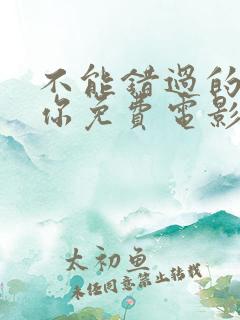 不能错过的
你免费电影
太初鱼
未经同意禁止转载